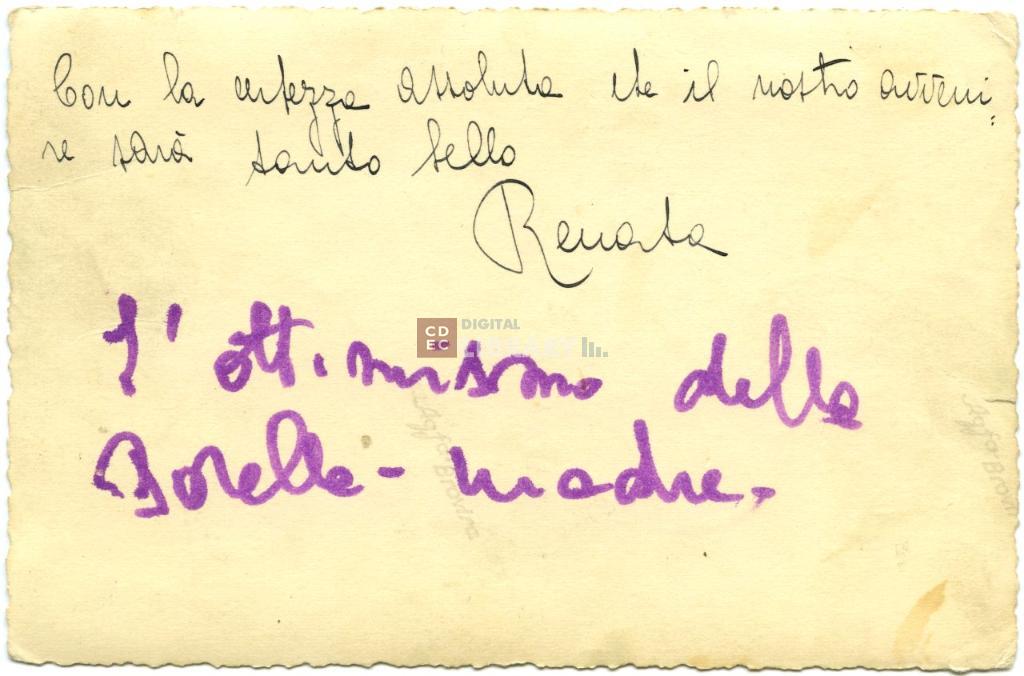 Con la certezza assoluta che il nostro avveni=
re sarà tanto bello
Renata
L'ottimismo della
Sorella-madre.
CD
EC
DIGITAL
LIBRARY
Agfa-Brovira
Agfa-Brovira